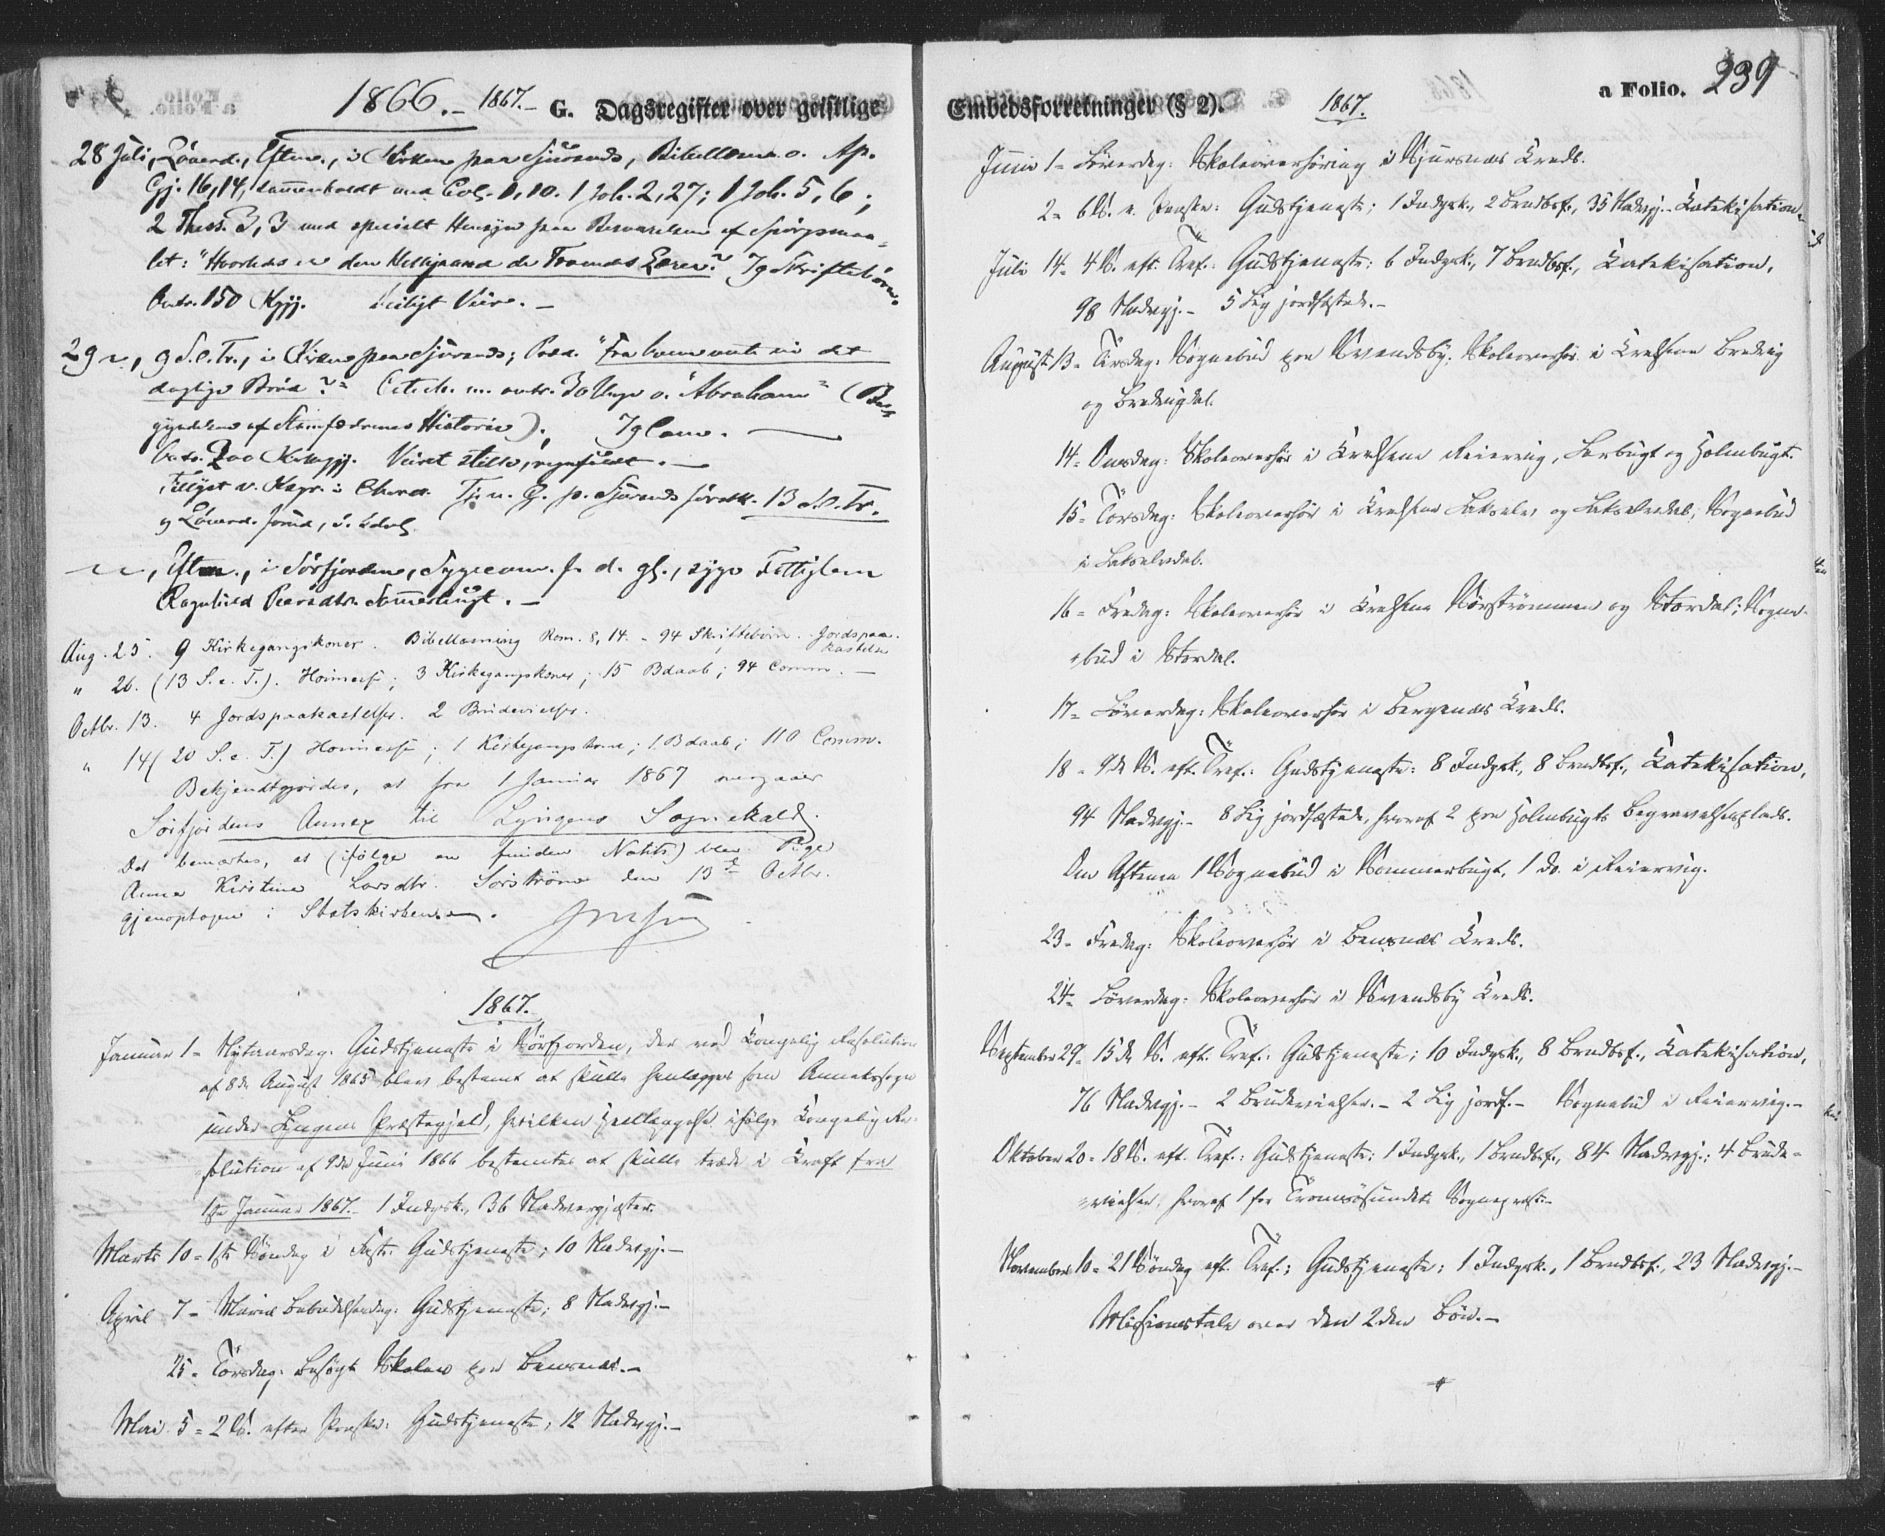 1866.- 1867.- G. Dagsregister over geistlige
28 Juli, Löverd., Eftm., i Kirken paa Sjursnes, Bibellæsn. o. Ap.
Gj. 16,14, sammenholdt med Col. 1,10. 1 Joh. 2,27; 1 Joh. 5,6;
2 Thess. 3,3 med specielt Hensyn paa Besvarelsen af Spörgsmaa-
let: "Hvorledes er den Helligaand de Troendes Lærer?" 79 Skriftebörn.
Omtr. 150 Kgj. Deiligt Veir.-
29 ", 9 S. e. Tr., i Kirken paa Sjursnes; Præd. "Fra hvem vente vi det
daglige Bröd?" Catech. m. omtr. 30 Unge o. "Abraham" (Be-
gyndelsen af Stamfædrenes Historie). 79 Com.
Omtr. 200 Kirkegj. Veiret stille, regnfuldt.-
Tillyst v. Kapr. i Choret Tj. n. G. p. Sjursnes först 13 S. e. Tr.
og Löverd. forud,
" ", Eftm., i Sörfjorden, Sygecom. f. d. gl., syge Fattiglem
Ragnhild Pedersdtr. Sommerbugt.-
Aug. 25. 9 Kirkegangskoner. Bibellæsning Rom. 8,14. - 94 Skriftebörn. Jordspaa-
kastelse
" 26. (13 S. e. T.). Höimesse; 3 Kirkegangskoner; 15 Bdaab; 94 Comm.-
Octbr. 13. 4 Jordspaakastelser. 2 Brudevielser.
" 14 (20 S. e. T.) Höimesse; 1 Kirkegangskone; 1 Bdaab; 110 Comm.
Bekjendtgjordes, at fra 1 Januar 1867 overgaaer
Sörfjordens Annex til Lyngens Sognekald.
Det bemærkes, at (ifölge en funden Notits) blev Pige
Anna Kirstine Larsdtr. Sörströmn den 13de Octbr.
gjenoptagen i Statskirken.
1867.
Januar 1- Nytaarsdag. Gudstjeneste i Sörfjorden, der ved Kongelig Resolution
af 8de August 1865 blev bestemt at skulle henlægges som Annexsogn
under Lyngens Præstegjeld, hvilken Henlæggelse ifölge Kongelig Re-
solution af 9de Juni 1866 bestemtes at skulle træde i Kraft fra
1ste Januar 1867. 1 Indgsk., 36 Nadvergjæster.
Marts 10- 1ste Söndag i Faste. Gudstjeneste; 10 Nadvgj.-
April 7- Mariæ Bebudelsesdag. Gudstjeneste; 8 Nadvgj.-
25- Torsdag. Besögt Skolen paa Bensnæs.-
Mai 5- 2 S. efter Paaske: Gudstjeneste; 12 Nadvgj.-
Embedsforretninger (§ 2). 1867. a Folio. 239
Juni 1- Löverdag: Skoleoverhöring i Sjursnæs Kreds.
2- 6 S. e. Paaske: Gudstjeneste; 1 Indgsk., 2 Brndbf., 35 Nadvgj.- Katekisation.
Juli 14- 4 S. eft. Tref.: Gudstjeneste; 6 Indgsk., 7 Brndbf., Katekisation,
98 Nadvgj.- 5 Lig jordfæstede.-
August 13- Tirsdag. Sognebud paa Svendsby. Skoleoverhör i Kredsene Bredvig
og Bredvigdal.
14- Onsdag: Skoleoverhör i Kredsene Reiervig, Larbugt og Holmbugt.
15- Torsdag: Skoleoverhör i Kredsene Lakselv og Lakselvdal; Sognebud
i Lakselvdal.
16- Fredag: Skoleoverhör i Kredsene Sörströmmen og Stordal; Sogne-
bud i Stordal.
17- Löverdag: Skoleoverhör i Bergenæs Kreds.
18- 9de S. eft. Tref.: Gudstjeneste: 8 Indgsk., 8 Brndbf., Katekisation,
94 Nadvgj.- 8 Lig jordfæstede, hvoraf 2 paa Holmbugts Begravelsesplads.
Om Aftenen 1 Sognebud i Sommerbugt, 1 do. i Reiervig.
23- Fredag: Skoleoverhör i Bensnæs Kreds.
24- Löverdag: Skoleoverhör i Svendsby Kreds.
September 29- 15de S. eft. Tref.: Gudstjeneste; 10 Indgsk., 8 Brndbf., Katekisation,
76 Nadvgj.- 2 Brudevielser.- 2 Lig jordf.- Sognebud i Reiervig.-
Oktober 20- 18 S. eft. Tref.: Gudstjeneste: 1 Indgsk., 1 Brndbf., 84 Nadvgj.; 4 Brude-
vielser, hvoraf 1 for Tromsösundets Sognepræst.-
November 10- 21 Söndag eft. Tref.; Gudstjeneste: 1 Indgsk., 1 Brndbf., 23 Nadvgj.-
Missionstale over den 2den Bön.-